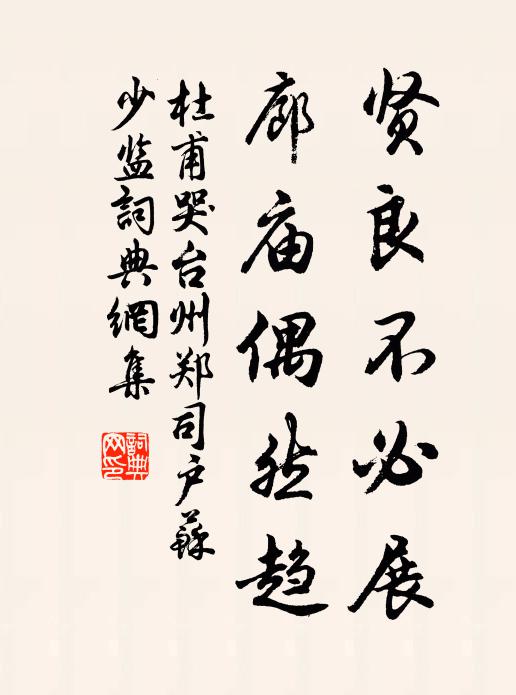 贤良不必展
廊庙偶然趋
杜甫哭台州郑司户蘇
少监詞典網集
詞典网印